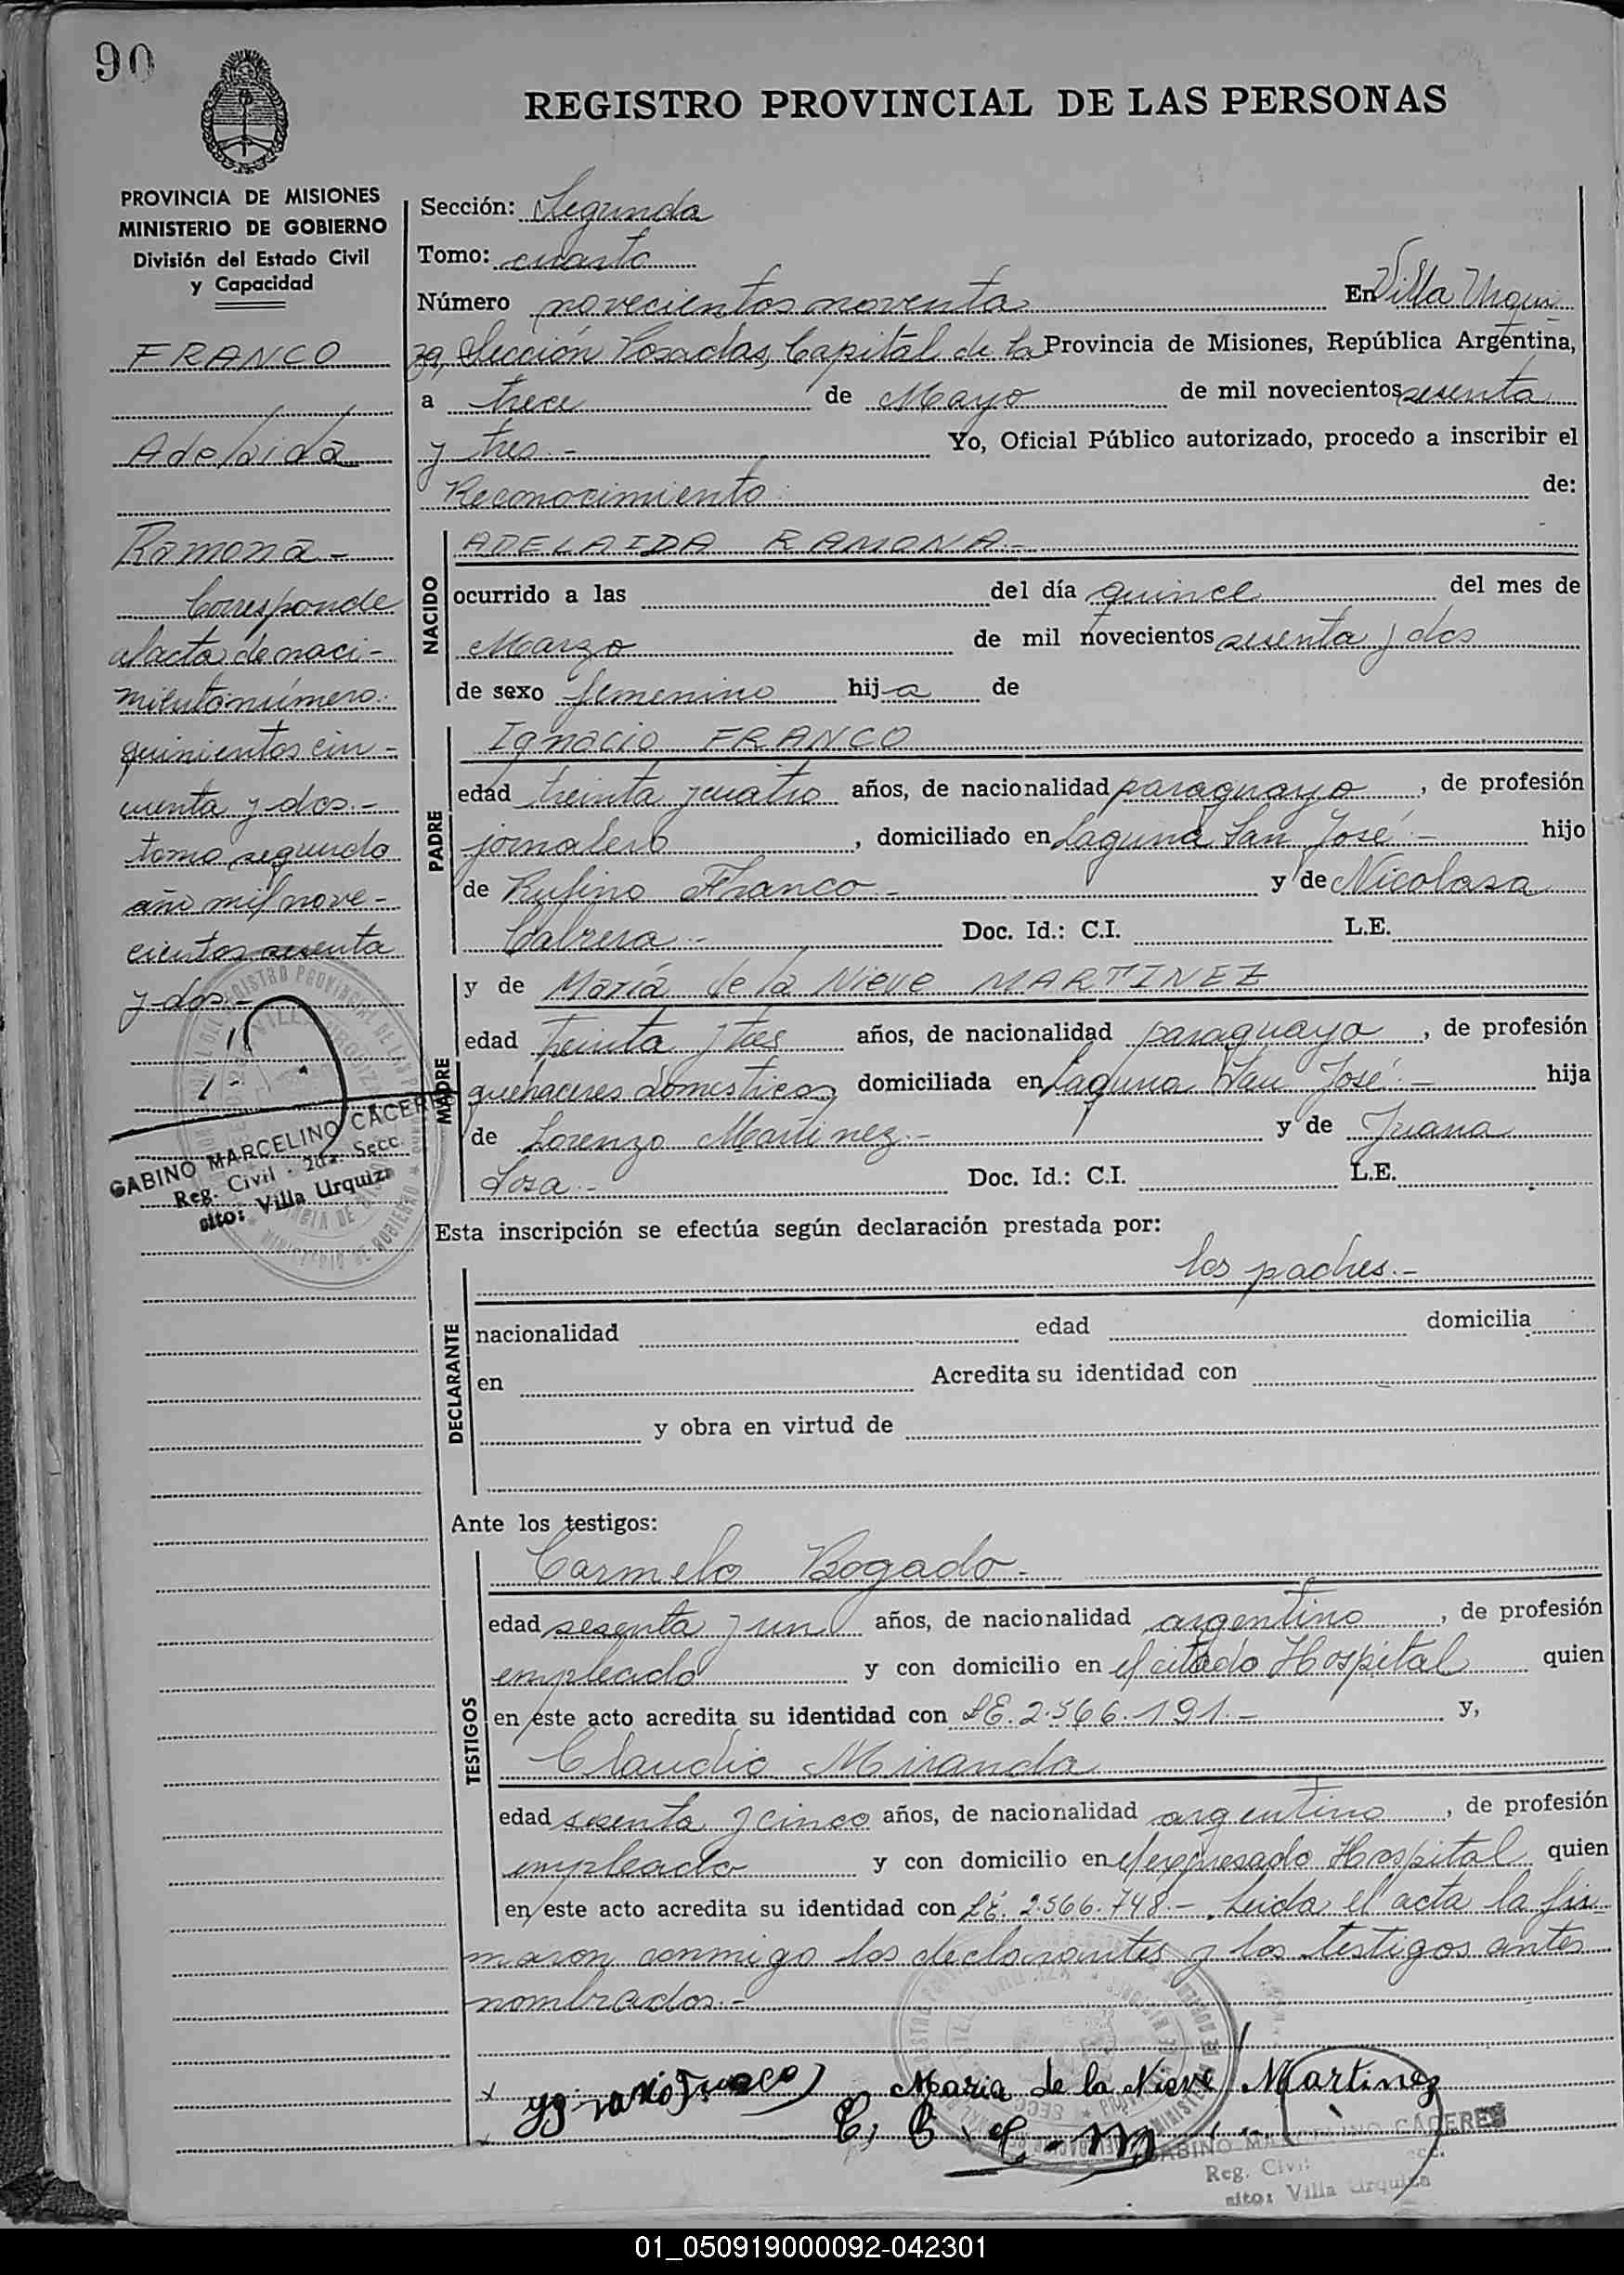 90
REGISTRO PROVINCIAL DE LAS PERSONAS
PROVINCIA DE MISIONES
MINISTERIO DE GOBIERNO
División del Estado Civil
y Capacidad
FRANCO
Adelaida
Ramona -
Corresponde
al acta de naci-
miento número
quinientos cin-
cuenta y dos.-
tomo segundo
año mil nove-
cientos sesenta
y dos.-
GABINO MARCELINO CACERES
Reg. Civil - 2da. Secc.
sito: Villa Urquiza
Sección: Segunda
Tomo: cuarto
Número novecientos noventa En Villa Urqui-
za, Sección Posadas, Capital de la Provincia de Misiones, República Argentina,
a trece de Mayo de mil novecientos sesenta
y tres.- Yo, Oficial Público autorizado, procedo a inscribir el
Reconocimiento de:
NACIDO
ADELAIDA RAMONA.-
ocurrido a las del día quince del mes de
Marzo de mil novecientos sesenta y dos
de sexo femenino hija de
PADRE
Ignacio FRANCO
edad treinta y cuatro años, de nacionalidad paraguayo, de profesión
jornalero, domiciliado en Laguna San José.- hijo
de Rufino Franco.- y de Nicolasa
Cabrera.- Doc. Id.: C.I. L.E.
MADRE
y de María de la Nieve MARTINEZ
edad treinta y tres años, de nacionalidad paraguaya, de profesión
quehaceres domésticos, domiciliada en Laguna San José.- hija
de Lorenzo Martinez.- y de Juana
Sosa.- Doc. Id.: C.I. L.E.
Esta inscripción se efectúa según declaración prestada por:
DECLARANTE
los padres.-
nacionalidad edad domicilia
en Acredita su identidad con
y obra en virtud de
Ante los testigos:
TESTIGOS
Carmelo Bogado.-
edad sesenta y un años, de nacionalidad argentino, de profesión
empleado y con domicilio en el citado Hospital quien
en este acto acredita su identidad con LE. 2.566.191.- y,
Claudio Miranda
edad sesenta y cinco años, de nacionalidad argentino, de profesión
empleado y con domicilio en el expresado Hospital quien
en este acto acredita su identidad con LE. 2.566.748.- Leida el acta la fir-
maron conmigo los declarantes y los testigos antes
nombrados.-
Maria de la Nieve Martinez
GABINO MARCELINO CACERES
Reg. Civil
sito: Villa Urquiza
01_050919000092-042301